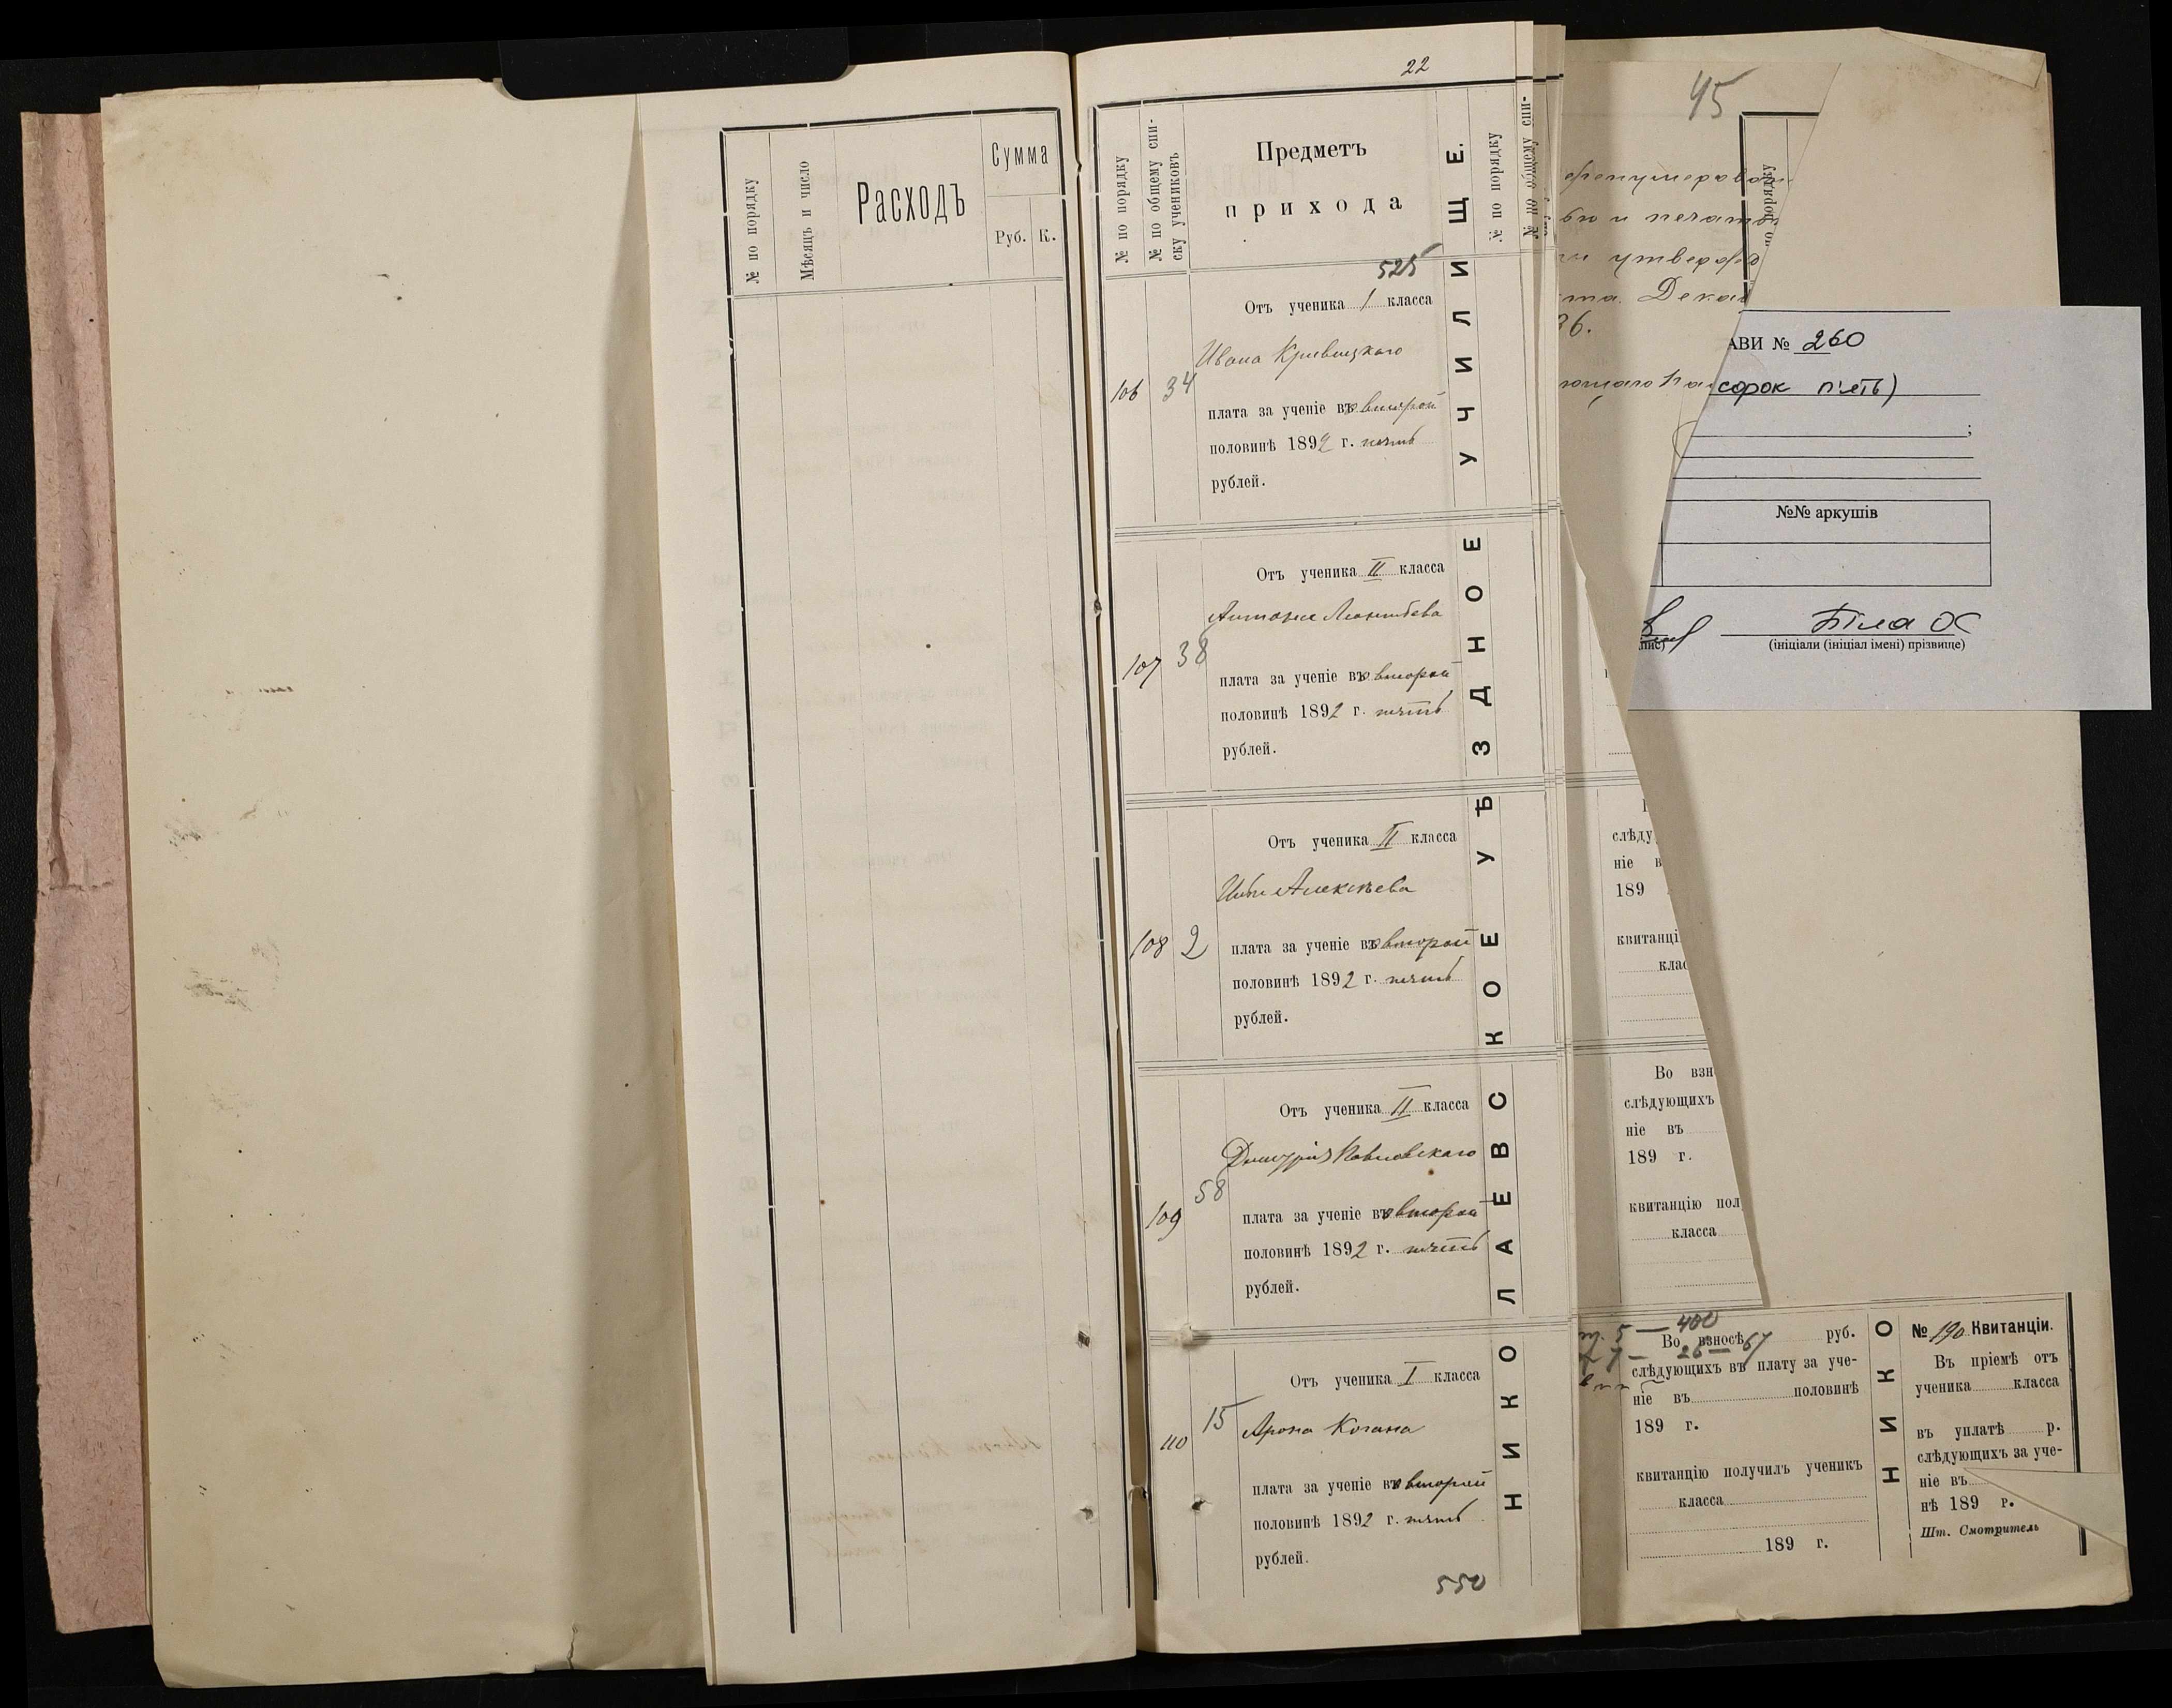 № по порядку
Мѣсяцъ и число
Расходъ
Сумма
Руб. К.
22
№ по порядку
№ по общему спи-
ску учениковъ
Предметъ
прихода
525
Отъ ученика I класса
Ивана Кривицкаго
106 34
плата за ученіе во второй
половинѣ 1892 г. пять
рублей.
Отъ ученика II класса
Антона Леонтьева
107 38
плата за ученіе во второй
половинѣ 1892 г. пять
рублей.
Отъ ученика II класса
Алексѣева
108 2
плата за ученіе во второй
половинѣ 1892 г. пять
рублей.
Отъ ученика II класса
Дмитрія
109 58
плата за ученіе во второй
половинѣ 1892 г. пять
рублей.
Отъ ученика I класса
110 15 Арона Когана
плата за ученіе во второй
половинѣ 1892 г. пять
рублей.
550
НИКОЛАЕВСКОЕ УѢЗДНОЕ УЧИЛИЩЕ.
№ по порядку
№ по общему спи-
45
по порядку
АВИ № 260
сорок п'ять)
;
№№ аркушів
Біла О
(ініціали (ініціал імені) прізвище)
слѣду
ніе в
189
квитанці
клас
Во взн
слѣдующихъ
ніе въ
189 г.
квитанцію пол
класса
5 — 400
Во взносѣ руб.
слѣдующихъ въ плату за уче-
ніе въ половинѣ
189 г.
квитанцію получилъ ученикъ
класса
189 г.
НИКО
№ 190 Квитанціи.
Въ пріемѣ отъ
ученика класса
въ уплатѣ р.
слѣдующихъ за уче-
ніе въ
нѣ 189 г.
Шт. Смотритель